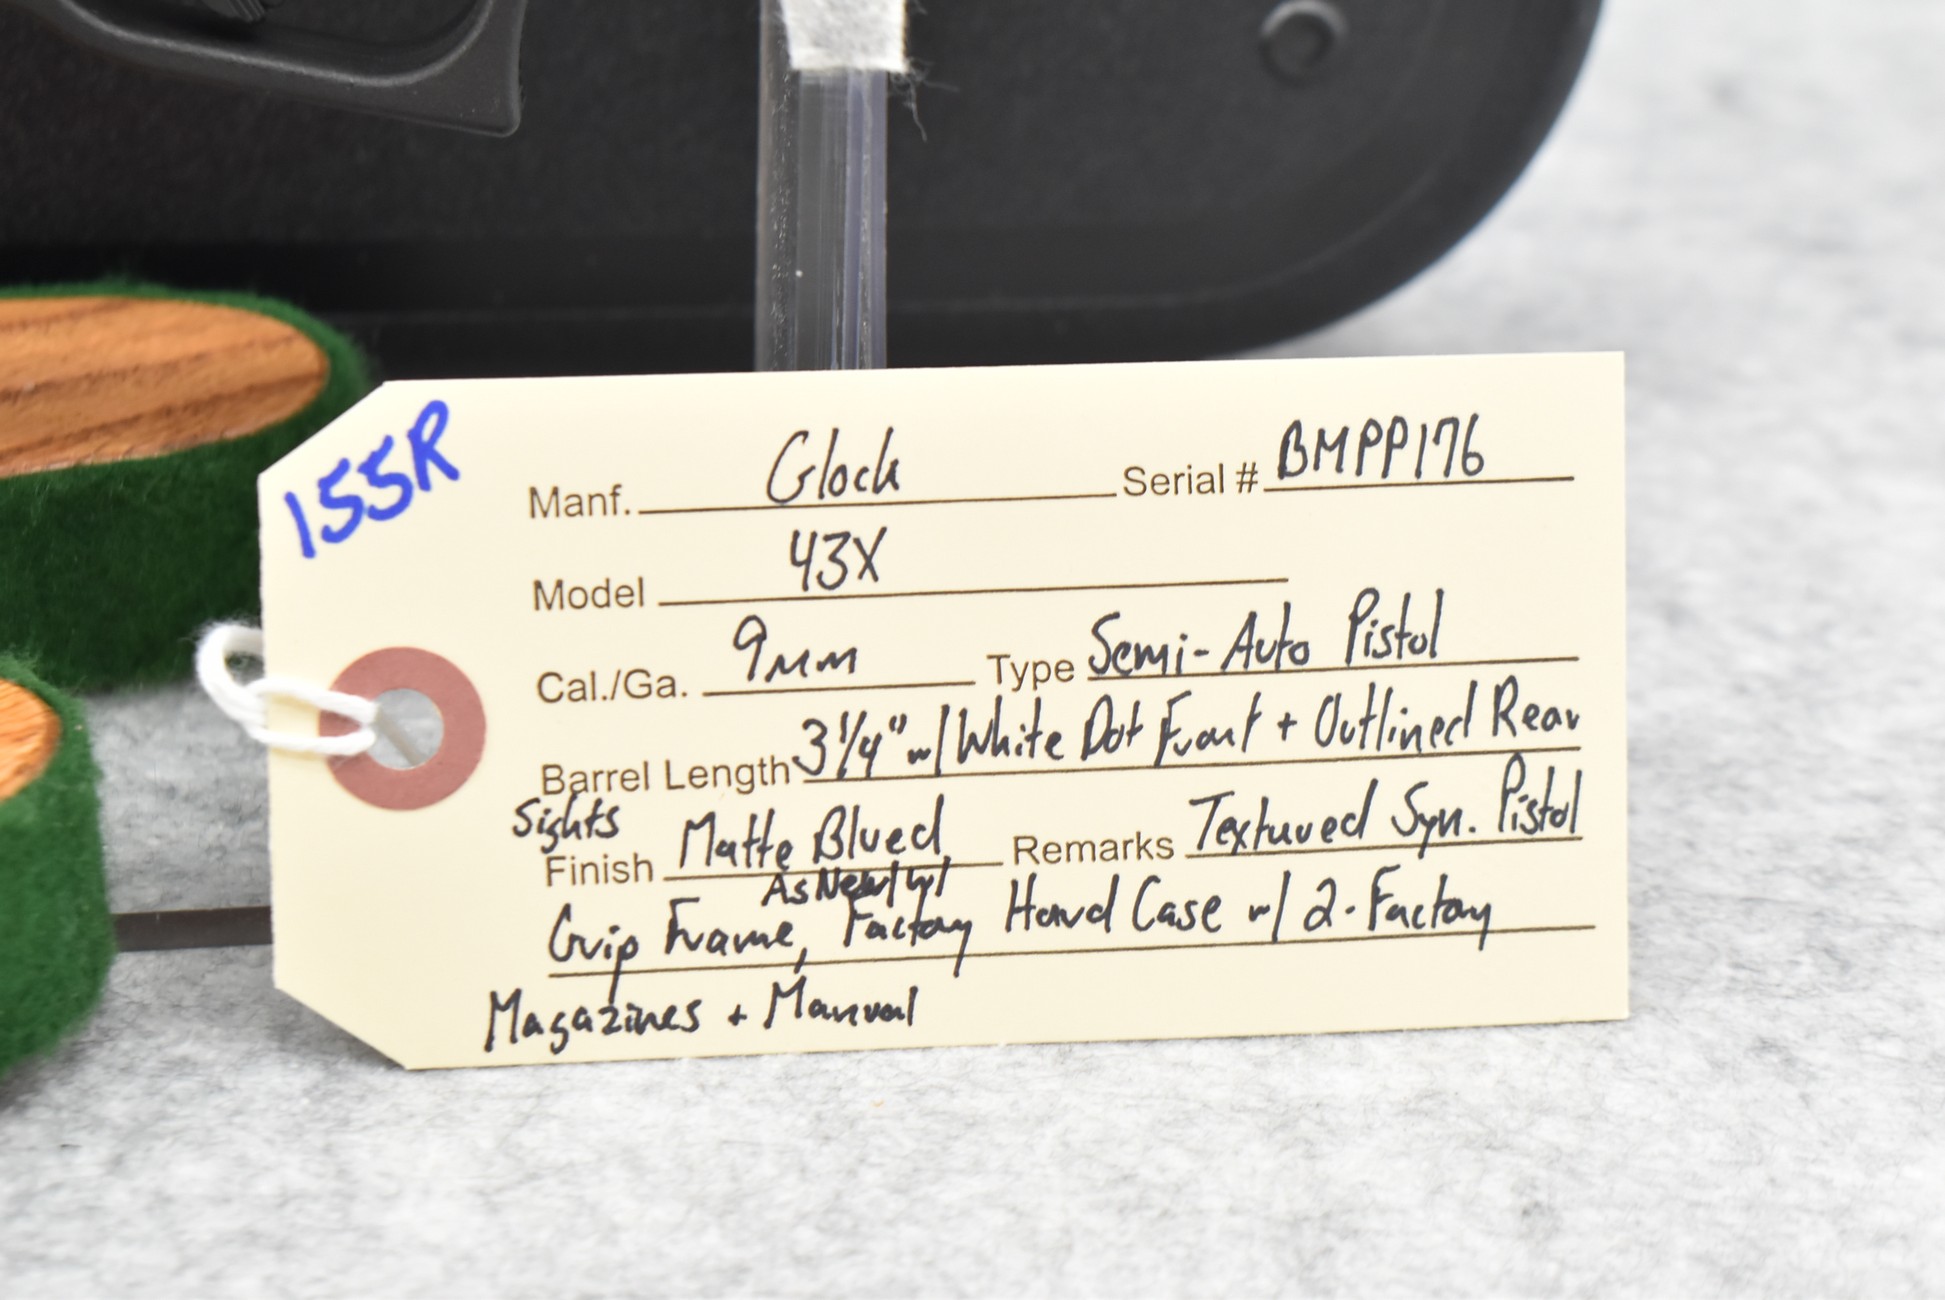 155R
Manf. Glock Serial # BMPP176
Model 43X
Cal./Ga. 9mm Type Semi-Auto Pistol
Barrel Length 3 1/4" w/ White Dot Front + Outlined Rear
Sights
Finish Matte Blued Remarks Textured Syn. Pistol
As New w/
Grip Frame, Factory Hard Case w/ 2-Factory
Magazines + Manual